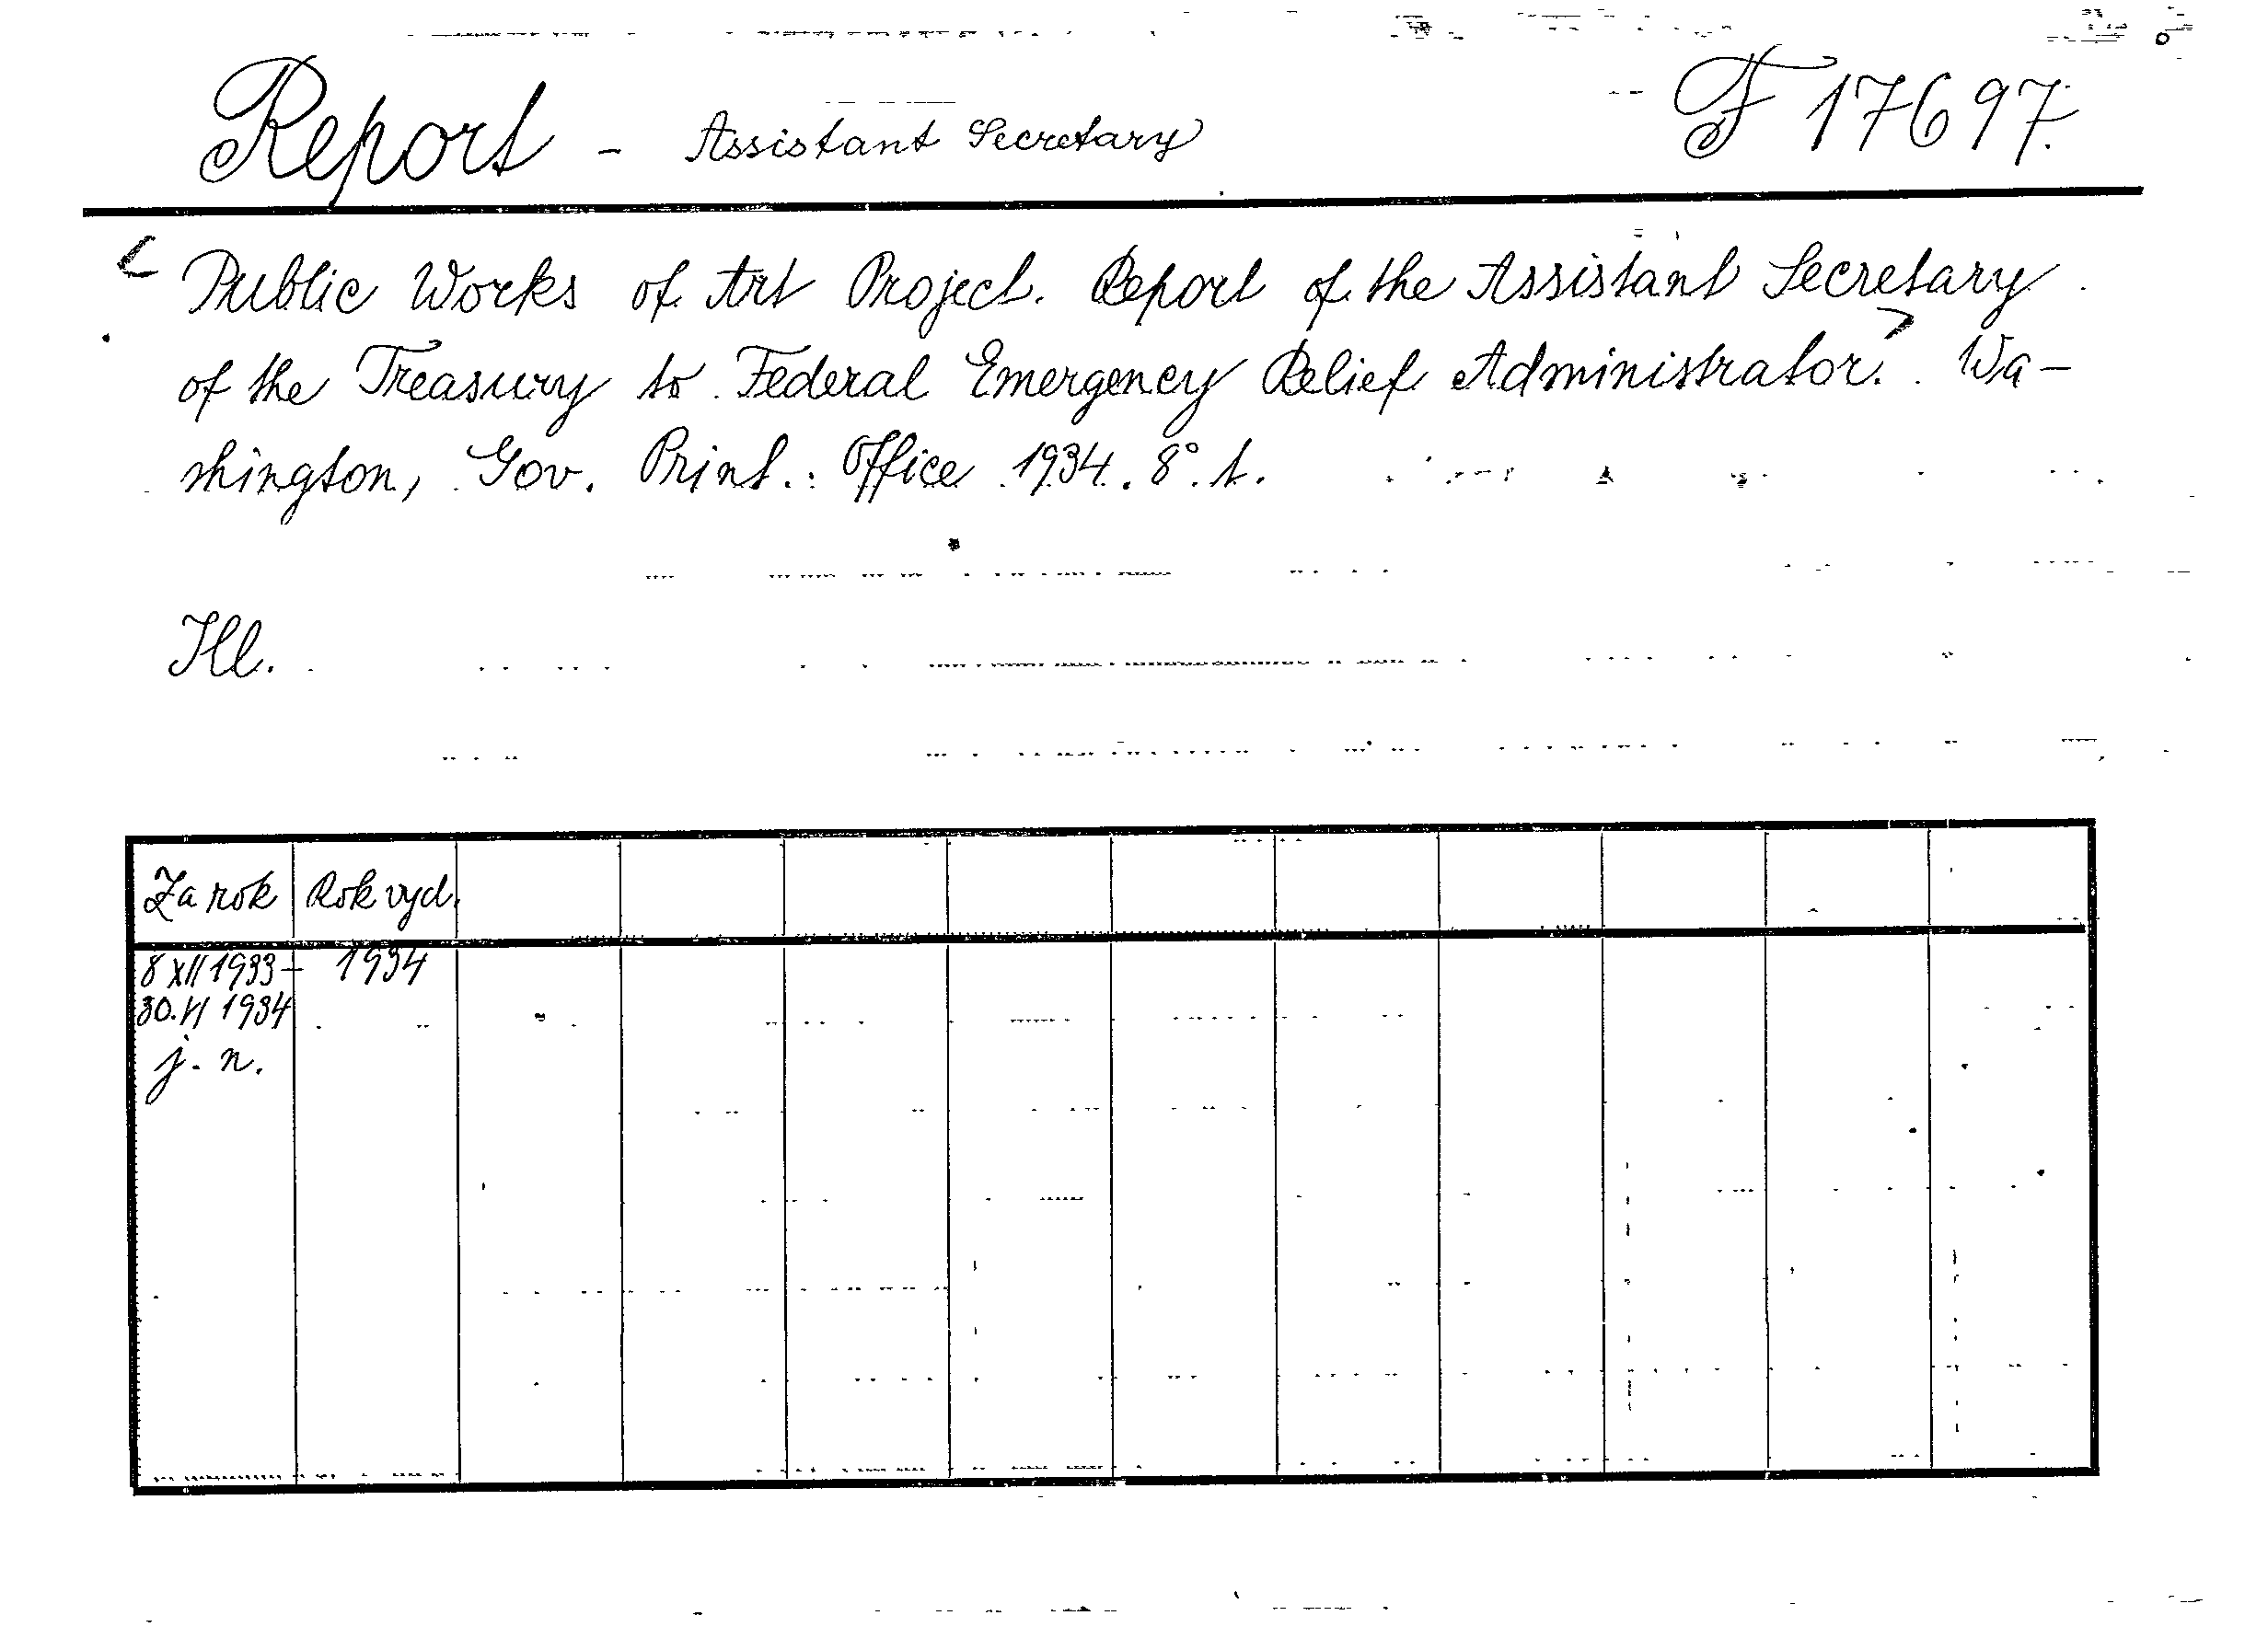 Report - Assistant Secretary F 17697.
< Public Works of Art Project. Report of the Assistant Secretary
of the Treasury to Federal Emergency Relief Administrator.> Wa-
shington, Gov. Print. Office 1934. 8°. t.
Ill.
Za rok Rok vyd.
8 XII 1933- 1934
30.VI 1934
j. n.